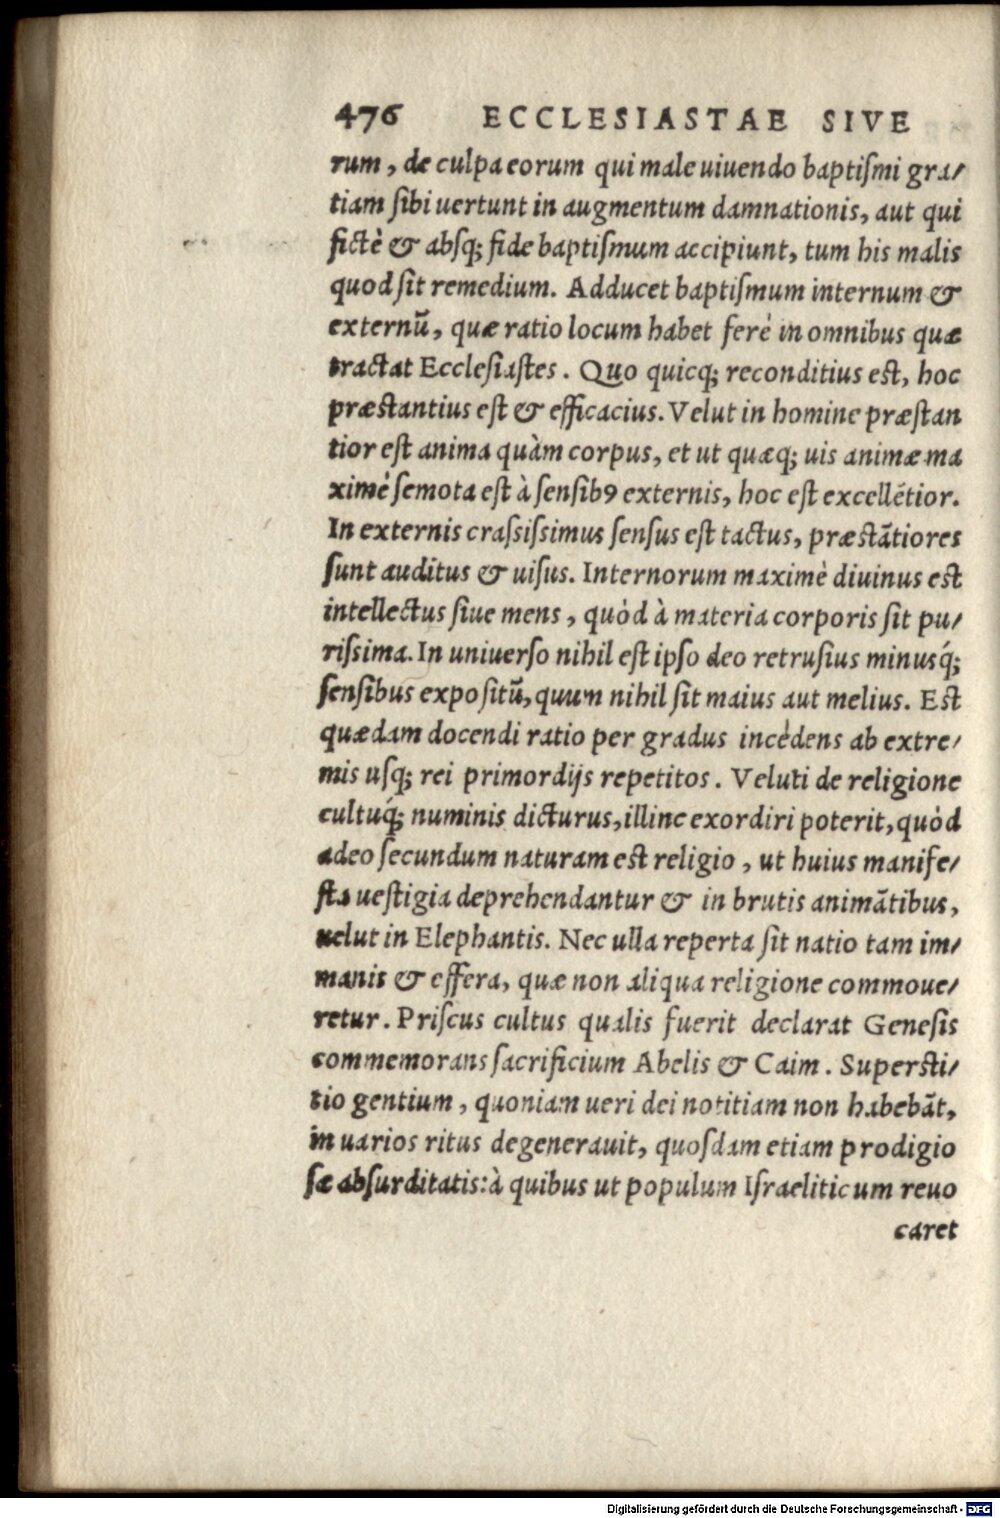 476 ECCLESIASTAE SIVE
rum, de culpa eorum qui male uiuendo baptiſmi gra/
tiam ſibi uertunt in augmentum damnationis, aut qui
fictè & abſq; fide baptiſmum accipiunt, tum his malis
quod ſit remedium. Adducet baptiſmum internum &
externũ, quæ ratio locum habet ferè in omnibus quæ
tractat Eccleſiaſtes. Quo quicq; reconditius eſt, hoc
præstantius eſt & efficacius. Velut in homine præſtan
tior eſt anima quàm corpus, et ut quæq; uis animæ ma
ximè ſemota eſt à ſenſibꝯ externis, hoc eſt excellẽtior.
In externis craſsiſsimus ſenſus eſt tactus, præstãtiores
ſunt auditus & uiſus. Internorum maximè diuinus eſt
intellectus ſiue mens, quòd à materia corporis ſit pu/
riſsima. In uniuerſo nihil eſt ipſo deo retruſius minusq́;
ſenſibus expoſitũ, quum nihil ſit maius aut melius. Eſt
quædam docendi ratio per gradus incèdens ab extre/
mis uſq; rei primordijs repetitos. Veluti de religione
cultuq́; numinis dicturus, illinc exordiri poterit, quòd
adeo ſecundum naturam eſt religio, ut huius manife/
ſta ueſtigia deprehendantur & in brutis animãtibus,
uelut in Elephantis. Nec ulla reperta ſit natio tam im/
manis & effera, quæ non aliqua religione commoue/
retur. Priſcus cultus qualis fuerit declarat Geneſis
commemorans ſacrificium Abelis & Caim. Superſti/
tio gentium, quoniam ueri dei notitiam non habebãt,
in uarios ritus degenerauit, quoſdam etiam prodigio
ſæ abſurditatis: à quibus ut populum Iſraeliticum reuo
caret
Digitalisierung gefördert durch die Deutsche Forschungsgemeinschaft - DFG